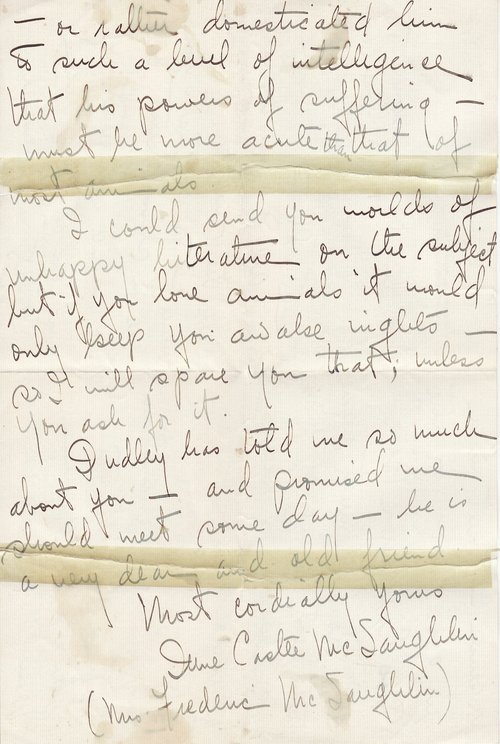 — or rather domesticated him
to such a level of intelligence
that his powers of suffering —
must be more acute than that of
most animals
I could send you worlds of
unhappy literature on the subject
but if you love animals it would
only keep you awake nights —
so I will spare you that; unless
you ask for it.
Dudley has told me so much
about you — and promised me
should meet some day — he is
a very dear and old friend
Most cordially yours
Irene Castle McLaughlin
(Mrs. Frederic McLaughlin)